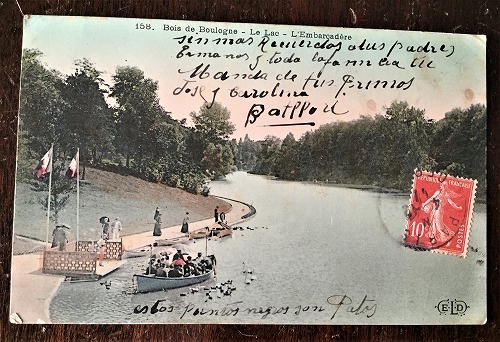 158. Bois de Boulogne - Le Lac - L'Embarcadère
sin mas Recuerdos a tus padres
Ermanos y toda la familia
Manda de tus Primos
Jose y Carolina
Batllou
REPUBLIQUE FRANÇAISE
10
estos puntos negos son Patos
ELD